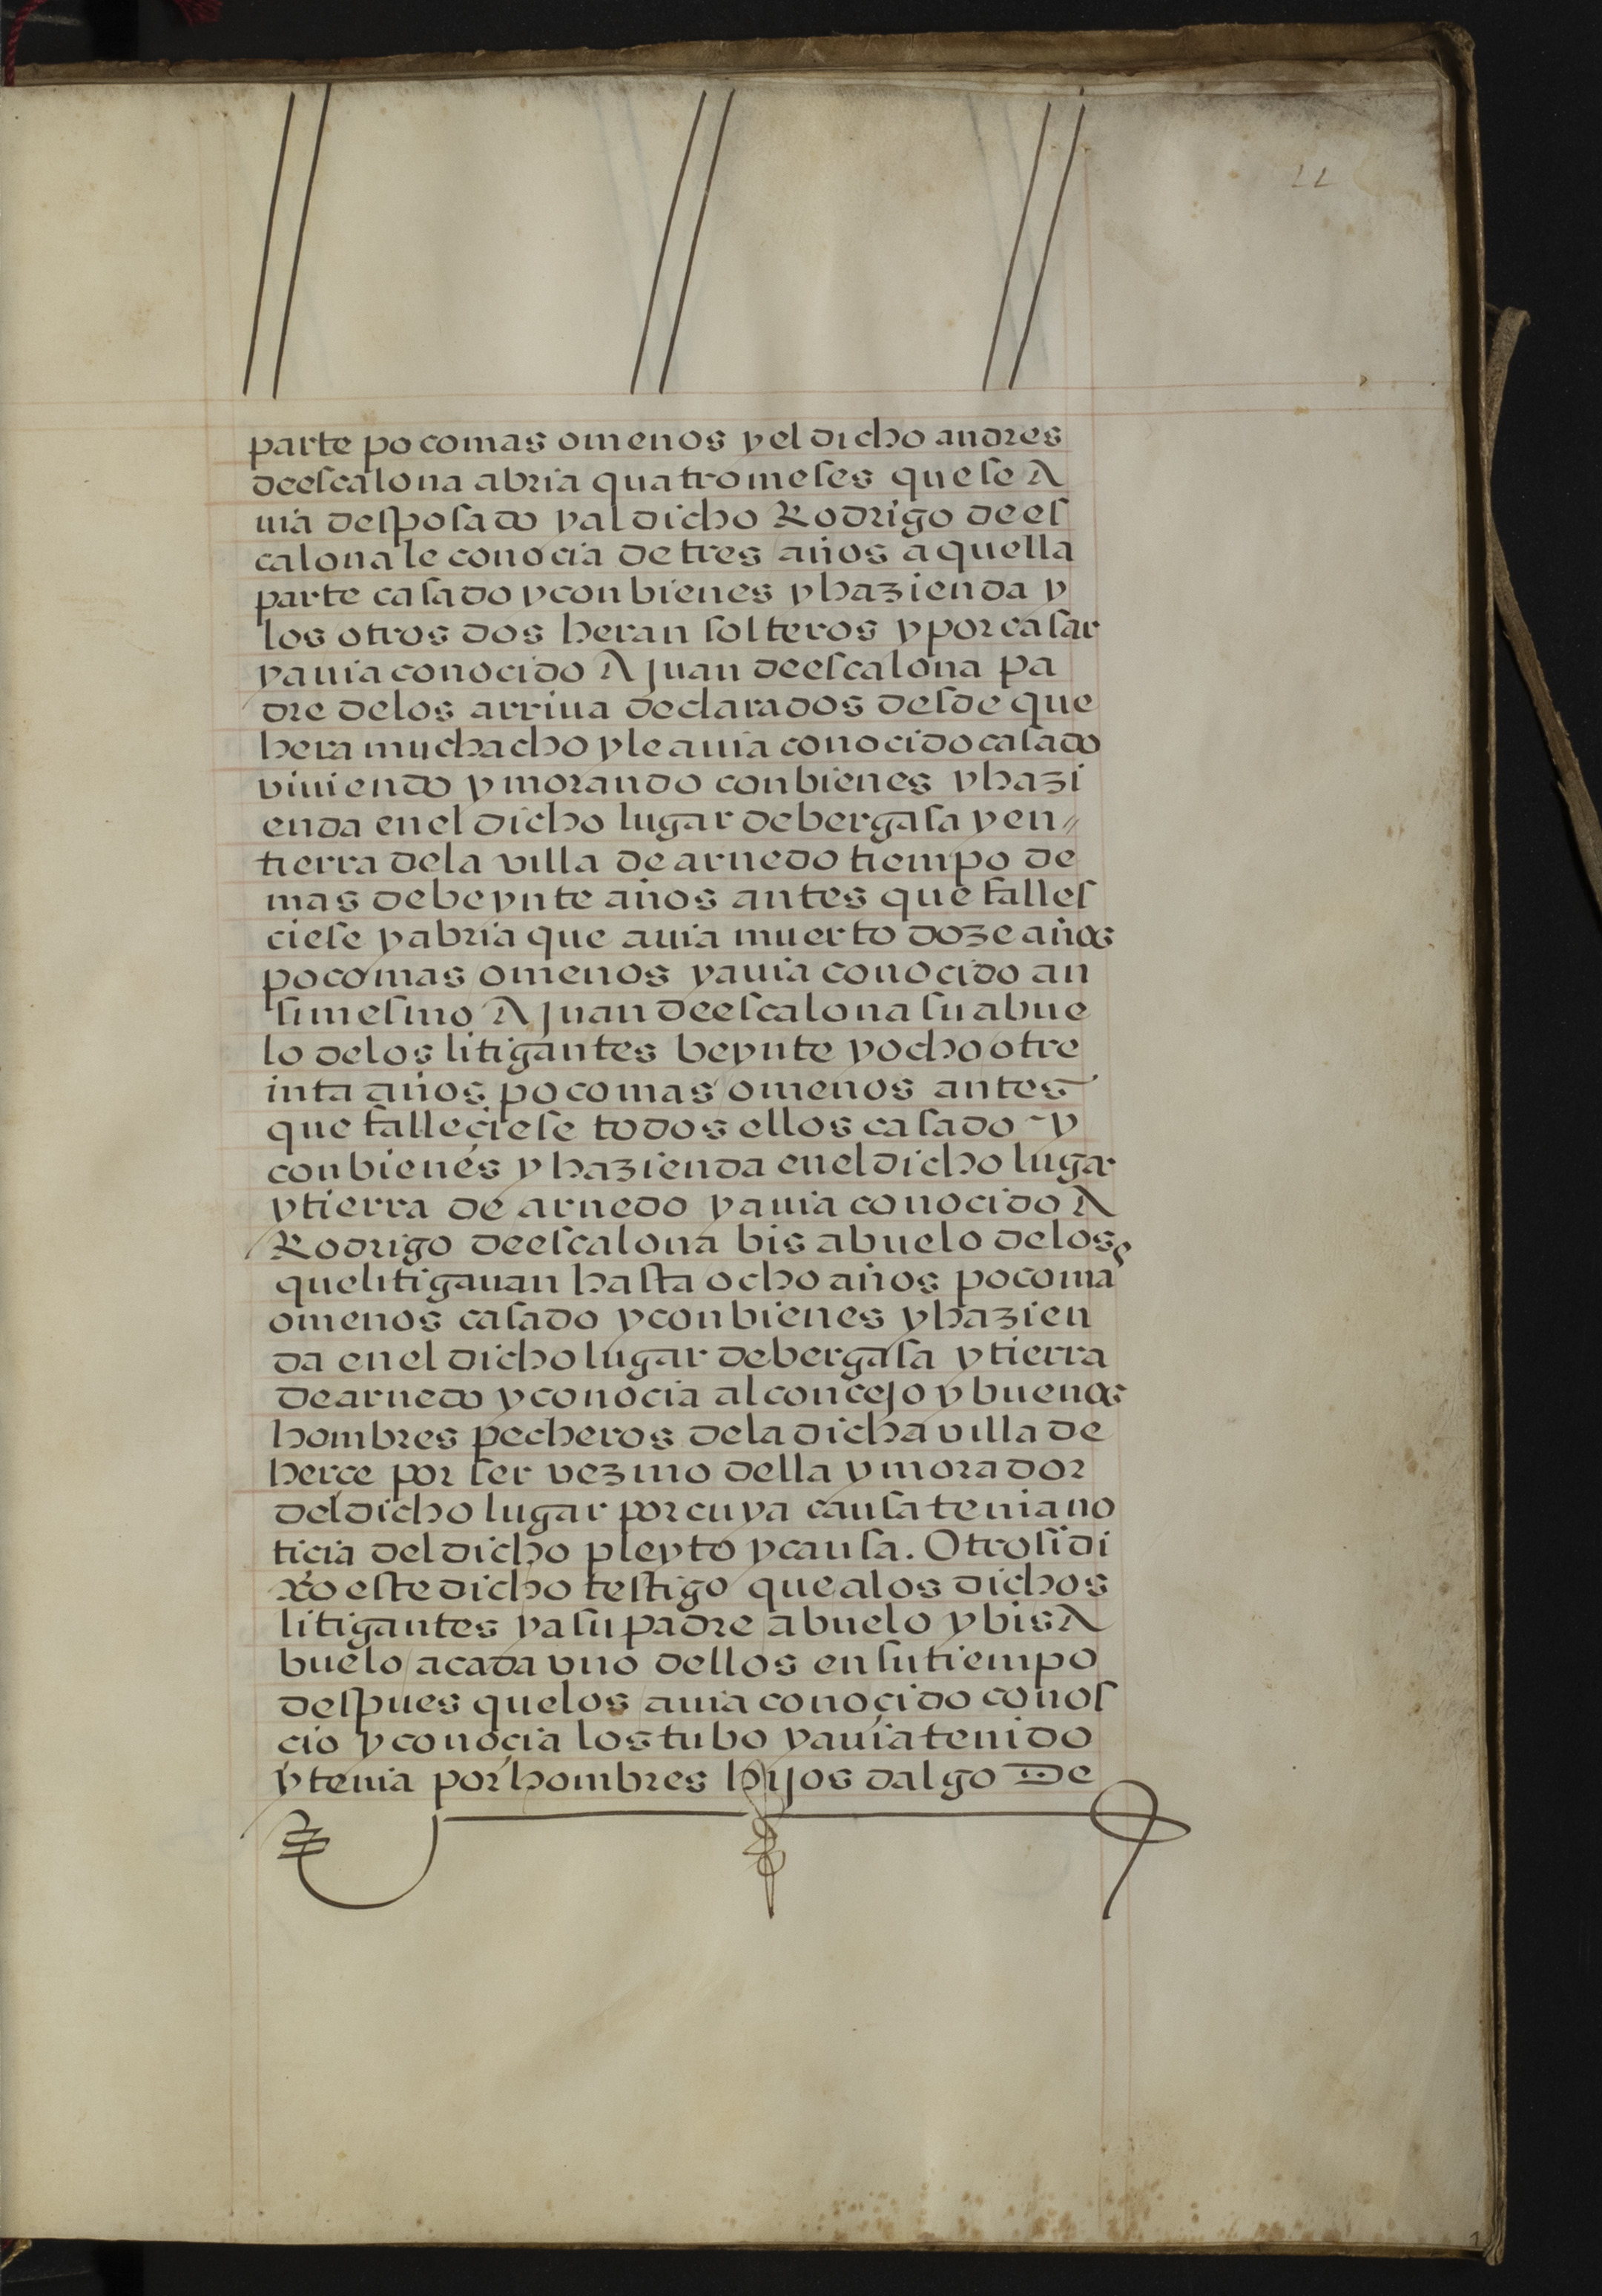 22
parte poco mas o menos y el dicho andres
de escalona abria quatro meses que se A
uia desposado y al dicho Rodrigo de es
calona le conocia de tres años a quella
parte casado y con bienes y hazienda y
los otros dos heran solteros y por casar
y auia conocido A Juan de escalona pa
dre de los arriua declarados desde que
hera muchacho y le auia conocido casado
viuiendo y morando con bienes y hazi
enda en el dicho lugar de bergasa y en//
tierra de la villa de arnedo tiempo de
mas de beynte años antes que falles
ciese y abria que auia muerto doze años
poco mas o menos y auia conocido an
simesmo A Juan de escalona su abue
lo de los litigantes beynte y ocho o tre
inta años poco mas o menos antes
que falleçiese todos ellos casado y
con bienes y hazienda en el dicho lugar
y tierra de arnedo y auia conocido A
Rodrigo de escalona bis abuelo de los
que litigauan hasta ocho años poco mas
o menos casado y con bienes y hazien
da en el dicho lugar de bergasa y tierra
de arnedo y conocia al concejo y buenos
hombres pecheros de la dicha villa de
herçe por ser vezino della y morador
del dicho lugar por cuya causa tenia no
ticia del dicho pleyto y causa. Otrosi di
xo este dicho testigo que a los dichos
litigantes y a su padre abuelo y bis A
buelo a cada vno dellos en su tiempo
despues que los auia conoçido conos
cio y conoçia los tubo y auia tenido
y tenia por hombres hijos dalgo De